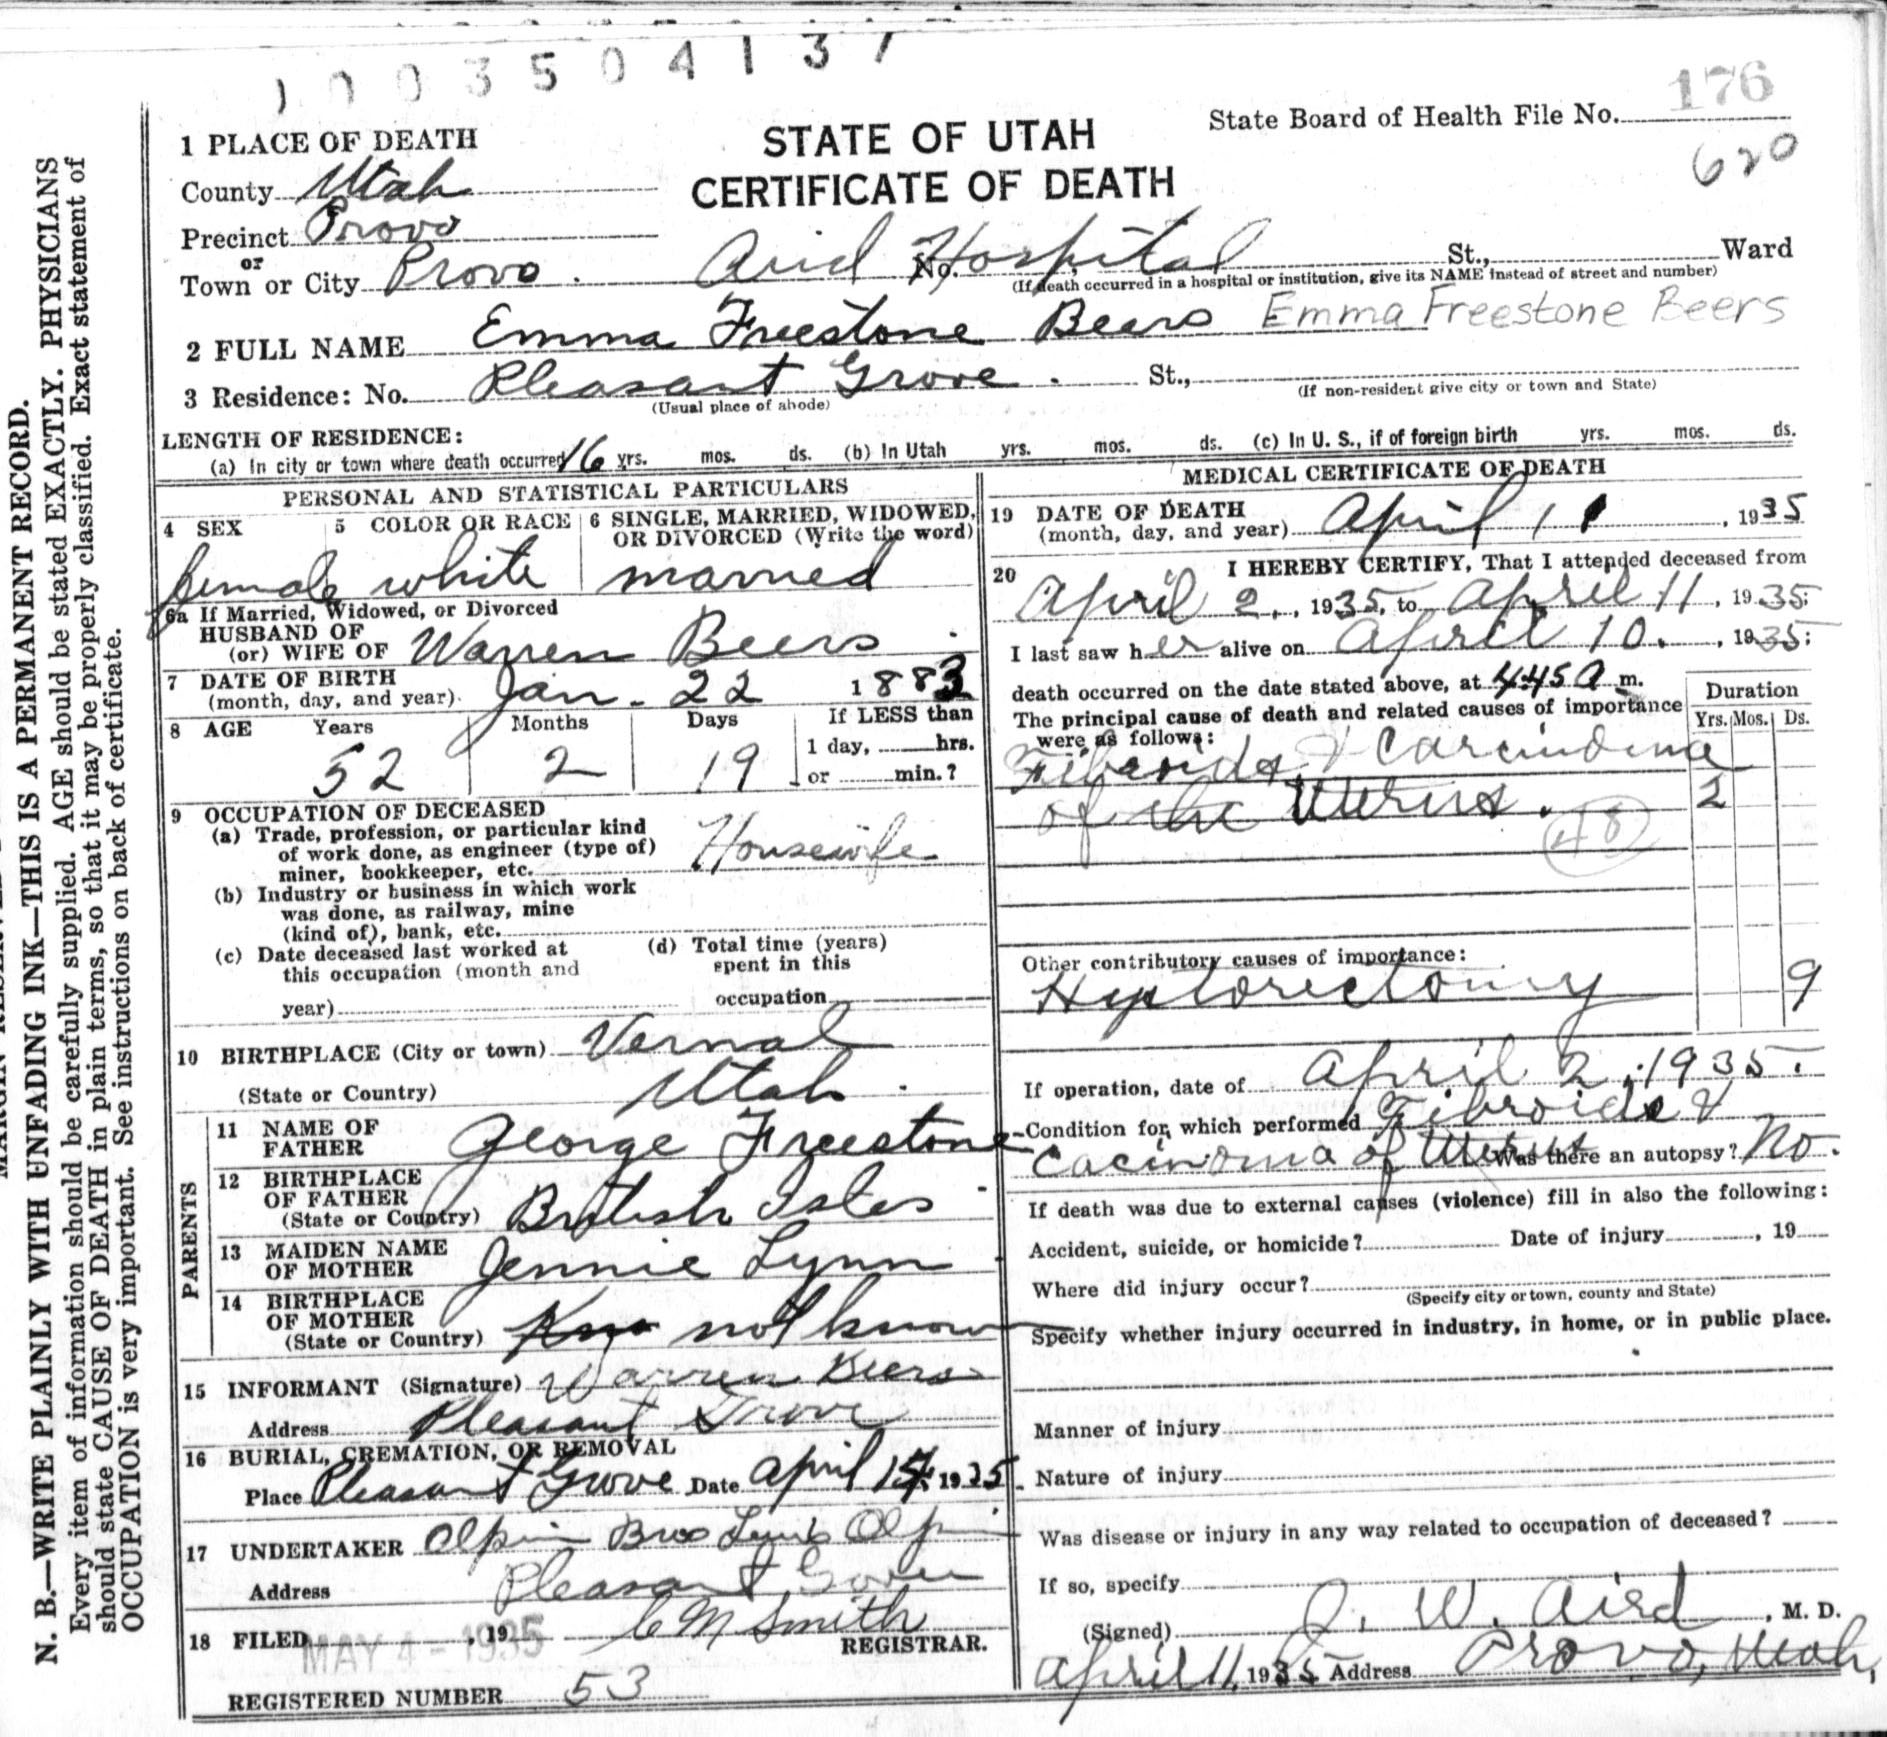 1003504137
1 PLACE OF DEATH
STATE OF UTAH
CERTIFICATE OF DEATH
State Board of Health File No. 176
620
County Utah
Precinct Provo
or
Town or City Provo . No. Arid Hospital St., Ward
(If death occurred in a hospital or institution, give its NAME instead of street and number)
2 FULL NAME Emma Freestone Beers Emma Freestone Beers
3 Residence: No. Pleasant Grove . St.,
(Usual place of abode) (If non-resident give city or town and State)
LENGTH OF RESIDENCE:
(a) In city or town where death occurred 16 yrs. mos. ds. (b) In Utah yrs. mos. ds. (c) In U. S., if of foreign birth yrs. mos. ds.
PERSONAL AND STATISTICAL PARTICULARS
4 SEX 5 COLOR OR RACE 6 SINGLE, MARRIED, WIDOWED,
OR DIVORCED (Write the word)
female white married
6a If Married, Widowed, or Divorced
HUSBAND OF
(or) WIFE OF Warren Beers .
7 DATE OF BIRTH
(month, day, and year). Jan. 22 1883
8 AGE Years Months Days If LESS than
1 day, hrs.
52 2 19 or min.?
9 OCCUPATION OF DECEASED
(a) Trade, profession, or particular kind
of work done, as engineer (type of)
miner, bookkeeper, etc. Housewife
(b) Industry or business in which work
was done, as railway, mine
(kind of), bank, etc.
(c) Date deceased last worked at
this occupation (month and
year)
(d) Total time (years)
spent in this
occupation
10 BIRTHPLACE (City or town) Vernal
(State or Country) Utah .
PARENTS
11 NAME OF
FATHER George Freestone
12 BIRTHPLACE
OF FATHER
(State or Country) British Isles
13 MAIDEN NAME
OF MOTHER Jennie Lynn
14 BIRTHPLACE
OF MOTHER
(State or Country) not known
15 INFORMANT (Signature) Warren Beers
Address Pleasant Grove
16 BURIAL, CREMATION, OR REMOVAL
Place Pleasant Grove Date April 1935
17 UNDERTAKER Olpin Bros Lewis Olpin
Address Pleasant Grove
18 FILED MAY 4 - 1935 , 19 C M Smith
REGISTRAR.
REGISTERED NUMBER 53
MEDICAL CERTIFICATE OF DEATH
19 DATE OF DEATH
(month, day, and year) April 11 , 1935
20 I HEREBY CERTIFY, That I attended deceased from
April 2, , 1935, to April 11 , 1935;
I last saw her alive on April 10. , 1935;
death occurred on the date stated above, at 4:45 a m.
The principal cause of death and related causes of importance
were as follows:
Duration
Yrs. Mos. Ds.
Fibroids & Carcinoma
of the Uterus . 2
48
Other contributory causes of importance:
Hysterectomy 9
If operation, date of April 2, 1935.
Condition for which performed Fibroids &
Cacinoma of Uterus Was there an autopsy? No.
If death was due to external causes (violence) fill in also the following:
Accident, suicide, or homicide? Date of injury , 19
Where did injury occur?
(Specify city or town, county and State)
Specify whether injury occurred in industry, in home, or in public place.
Manner of injury
Nature of injury
Was disease or injury in any way related to occupation of deceased?
If so, specify
(Signed) J. W. Aird , M. D.
April 11, 1935 Address Provo, Utah,
N. B.—WRITE PLAINLY WITH UNFADING INK—THIS IS A PERMANENT RECORD.
Every item of information should be carefully supplied. AGE should be stated EXACTLY. PHYSICIANS
should state CAUSE OF DEATH in plain terms, so that it may be properly classified. Exact statement of
OCCUPATION is very important. See instructions on back of certificate.